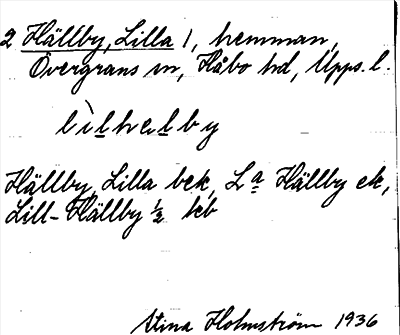 2 Hällby, Lilla 1, hemman,
Övergrans sn, Håbo hd, Upps. l.
lìlhelby
Hällby, Lilla bek, La Hällby ek,
Lill-Hällby ½ kb
Stina Holmström 1936